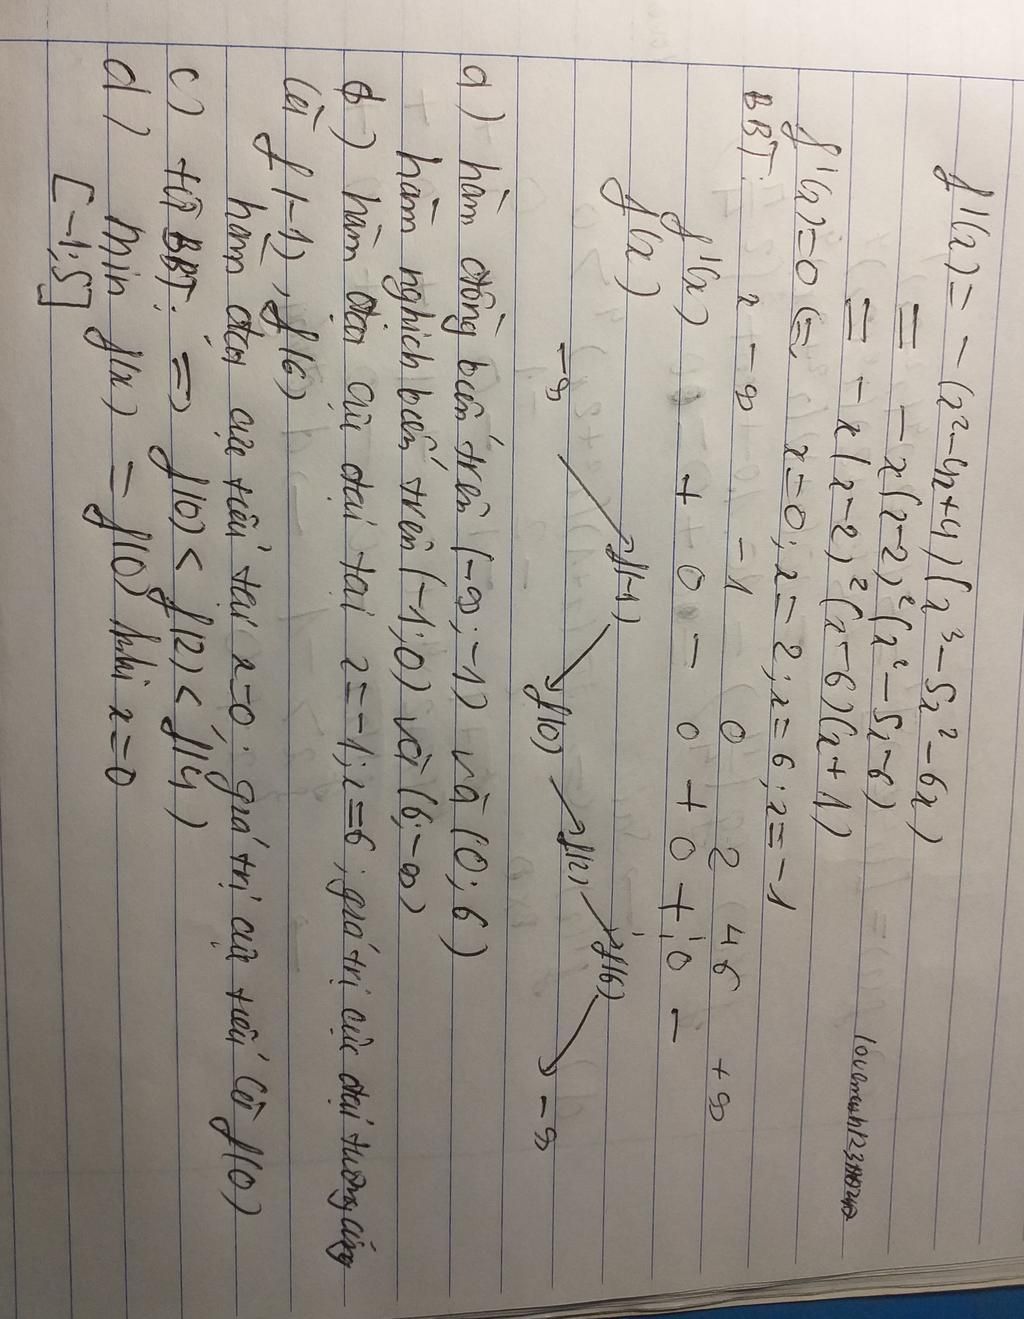 f'(x) = - (x² - 4x + 4) (x³ - 5x² - 6x)
= - x (x - 2)² (x² - 5x - 6)
= - x (x - 2)² (x - 6) (x + 1)
f'(x) = 0 (=, x = 0; x = 2; x = 6; x = -1
BBT: x -∞ -1 0 2 4 6 +∞
f'(x) + 0 - 0 + 0 + 0 -
f(x) -∞ f(-1) f(0) f(2) f(6) -∞
a) hàm đồng biến trên (-∞; -1) và (0; 6)
hàm nghịch biến trên (-1; 0) và (6; -∞)
b) hàm đạt cực đại tại x = -1; x = 6; giá trị cực đại tương ứng
là f(-1), f(6)
hàm đạt cực tiểu tại x = 0; giá trị cực tiểu là f(0)
c) từ BBT: => f(0) < f(2) < f(4)
d) min f(x) = f(0) khi x = 0
[-1; 5]